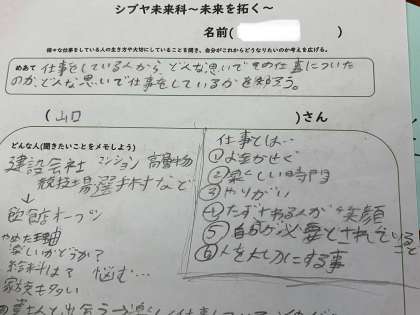 シブヤ未来科～未来を拓く～
名前(　　　)
様々な仕事をしている人の生き方や大切にしていることを聞き、自分がこれからどうなりたいのか考えを広げる。
めあて 仕事をしている人から、どんな思いでその仕事についた
のか、どんな思いで仕事をしているかを知ろう。
(山口　　　)さん
どんな人(聞きたいことをメモしよう)
建設会社 マンション 高層
競技場 選手村など
↓
飲食店オープン
やめた理由
楽しいかどうか?
給料は? 悩む…
仕事とは…
①お金かせぐ
②楽しい時間
③やりがい
④たずさわる人が笑顔
⑤自分が必要とされていること
⑥人を大切にする事